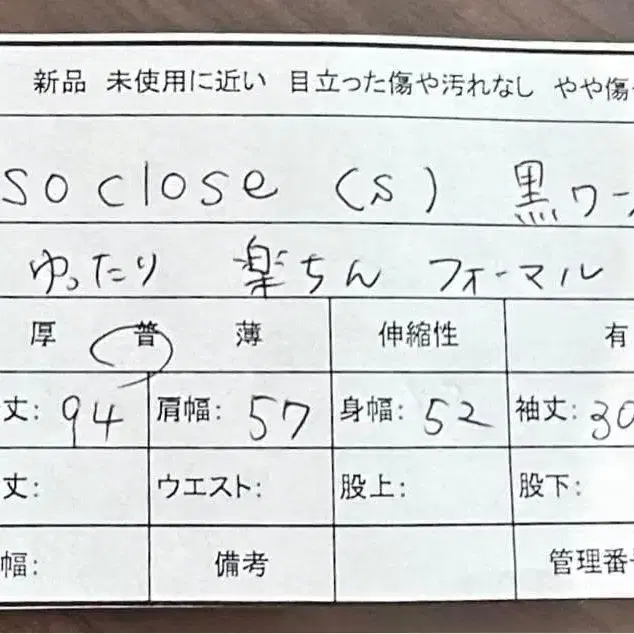 新品 未使用に近い 目立った傷や汚れなし やや傷
so close (S) 黒ワー
ゆったり 楽ちん フォーマル
厚 普 薄 伸縮性 有
丈: 94 肩幅: 57 身幅: 52 袖丈: 30
丈: ウエスト: 股上: 股下:
幅: 備考 管理番